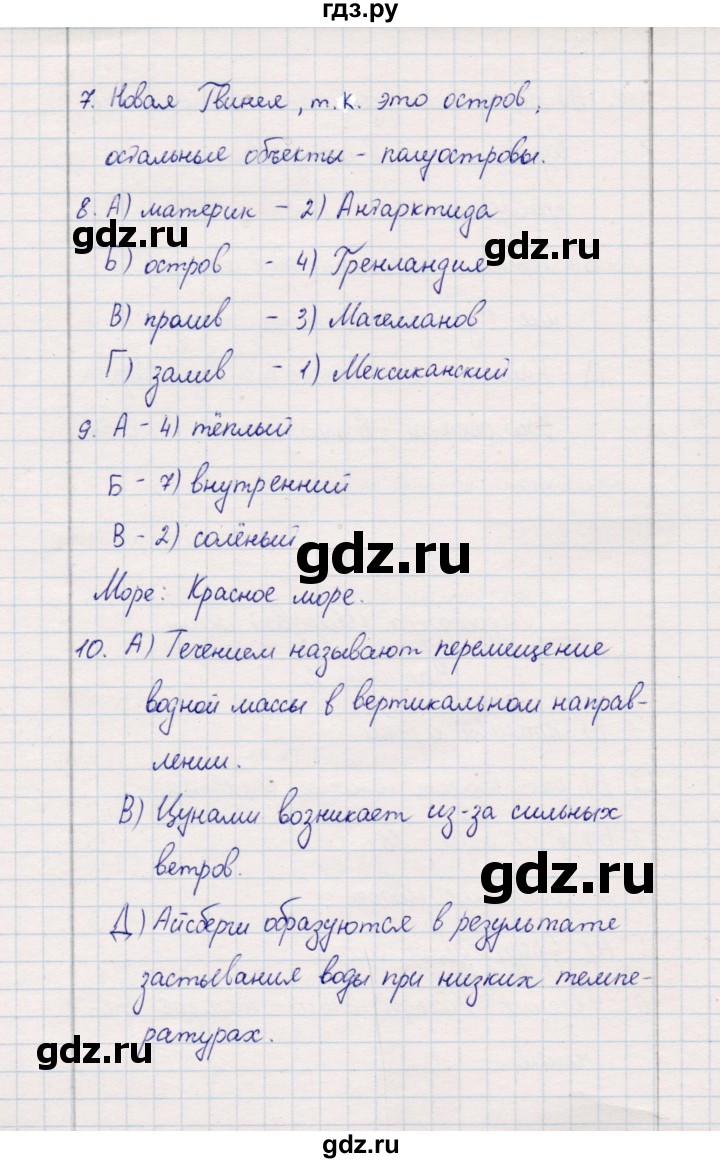 гдз.ру
7. Новая Гвинея, т.к. это остров,
остальные объекты - полуостровы.
8. А) материк - 2) Антарктида
gdz.ru
Б) остров - 4) Гренландия
gdz.ru
В) пролив - 3) Магелланов
Г) залив - 1) Мексиканский
9. А - 4) тёплый
Б - 7) внутренний
В - 2) солёный
gdz.ru
Море: Красное море.
10. А) Течением называют перемещение
водной массы в вертикальном направ-
лении.
В) Цунами возникает из-за сильных
ветров.
gdz.ru
Д) Айсберги образуются в результате
застывания воды при низких темпе-
ратурах.
gdz.ru
gdz.ru